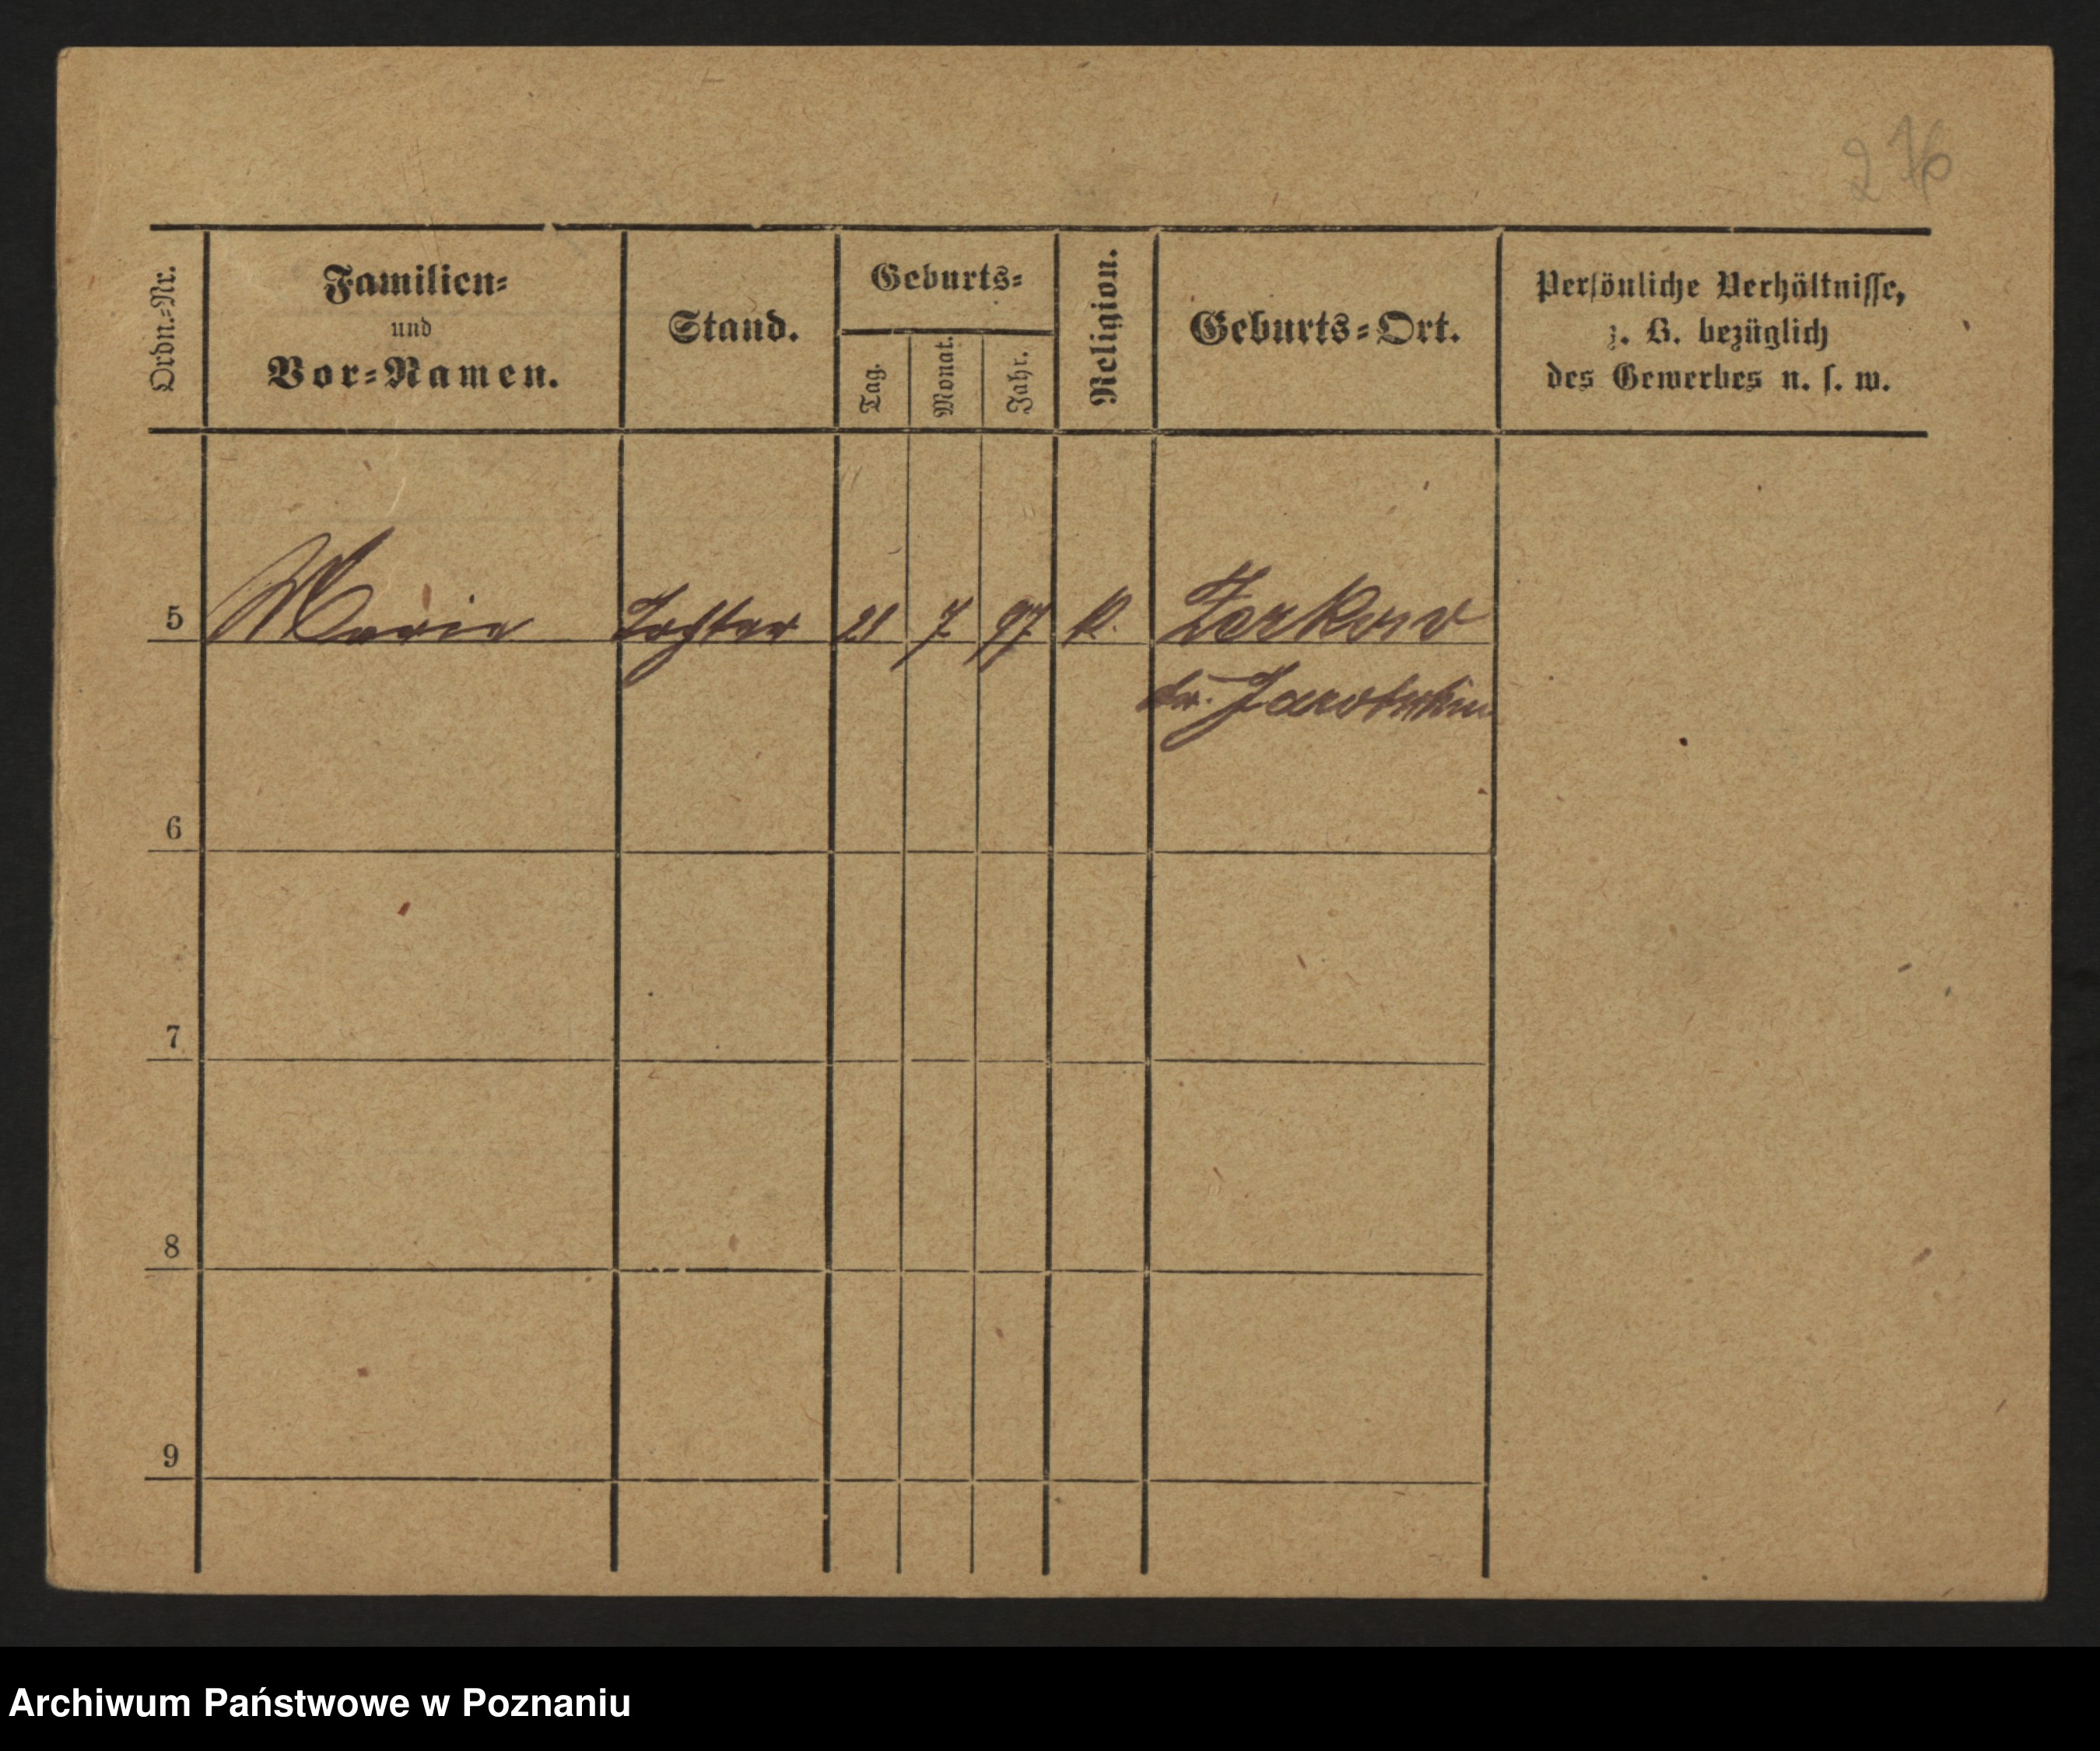 276
Ordn.-Nr.
Familien-
und
Vor-Namen.
Stand.
Geburts-
Tag.
Monat.
Jahr.
Religion.
Geburts-Ort.
Persönliche Verhältnisse,
z. B. bezüglich
des Gewerbes u. s. w.
5 Marie Tochter 21 7 97 k. Zerkow
Kr. Jarotschin
6
7
8
9
Archiwum Państwowe w Poznaniu